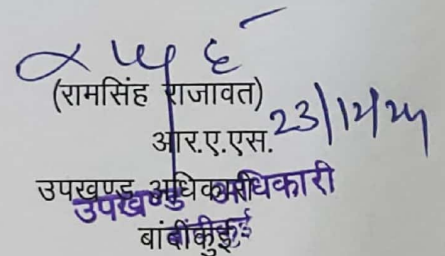 (रामसिंह राजावत)
आर.ए.एस. 23/12/24
उपखण्ड अधिकारी
उपखण्ड अधिकारी
बांदीकुई